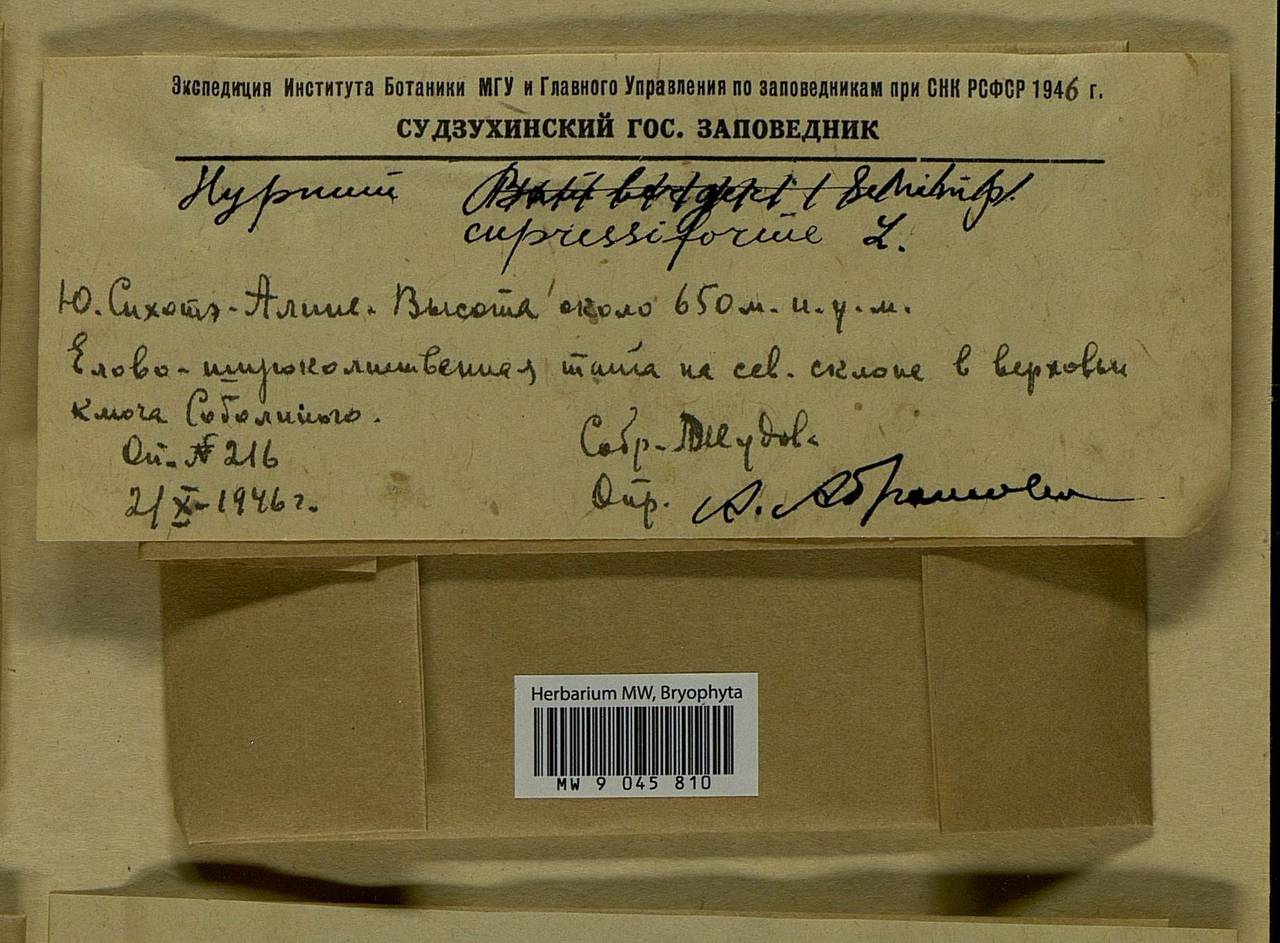 Экспедиция Института Ботаники МГУ и Главного Управления по заповедникам при СНК РСФСР 1946 г.
СУДЗУХИНСКИЙ ГОС. ЗАПОВЕДНИК
Hypnum Schimp.
cupressiforme L.
Ю. Сихотэ-Алинь. Высота около 650 м. н. у. м.
Елово-широколиственная тайга на сев. склоне в верховьи
ключа Соболиного.
Оп. № 216
21 X-1946 г.
Собр.
Опр. А. Абрамова
Herbarium MW, Bryophyta
MW 9 045 810